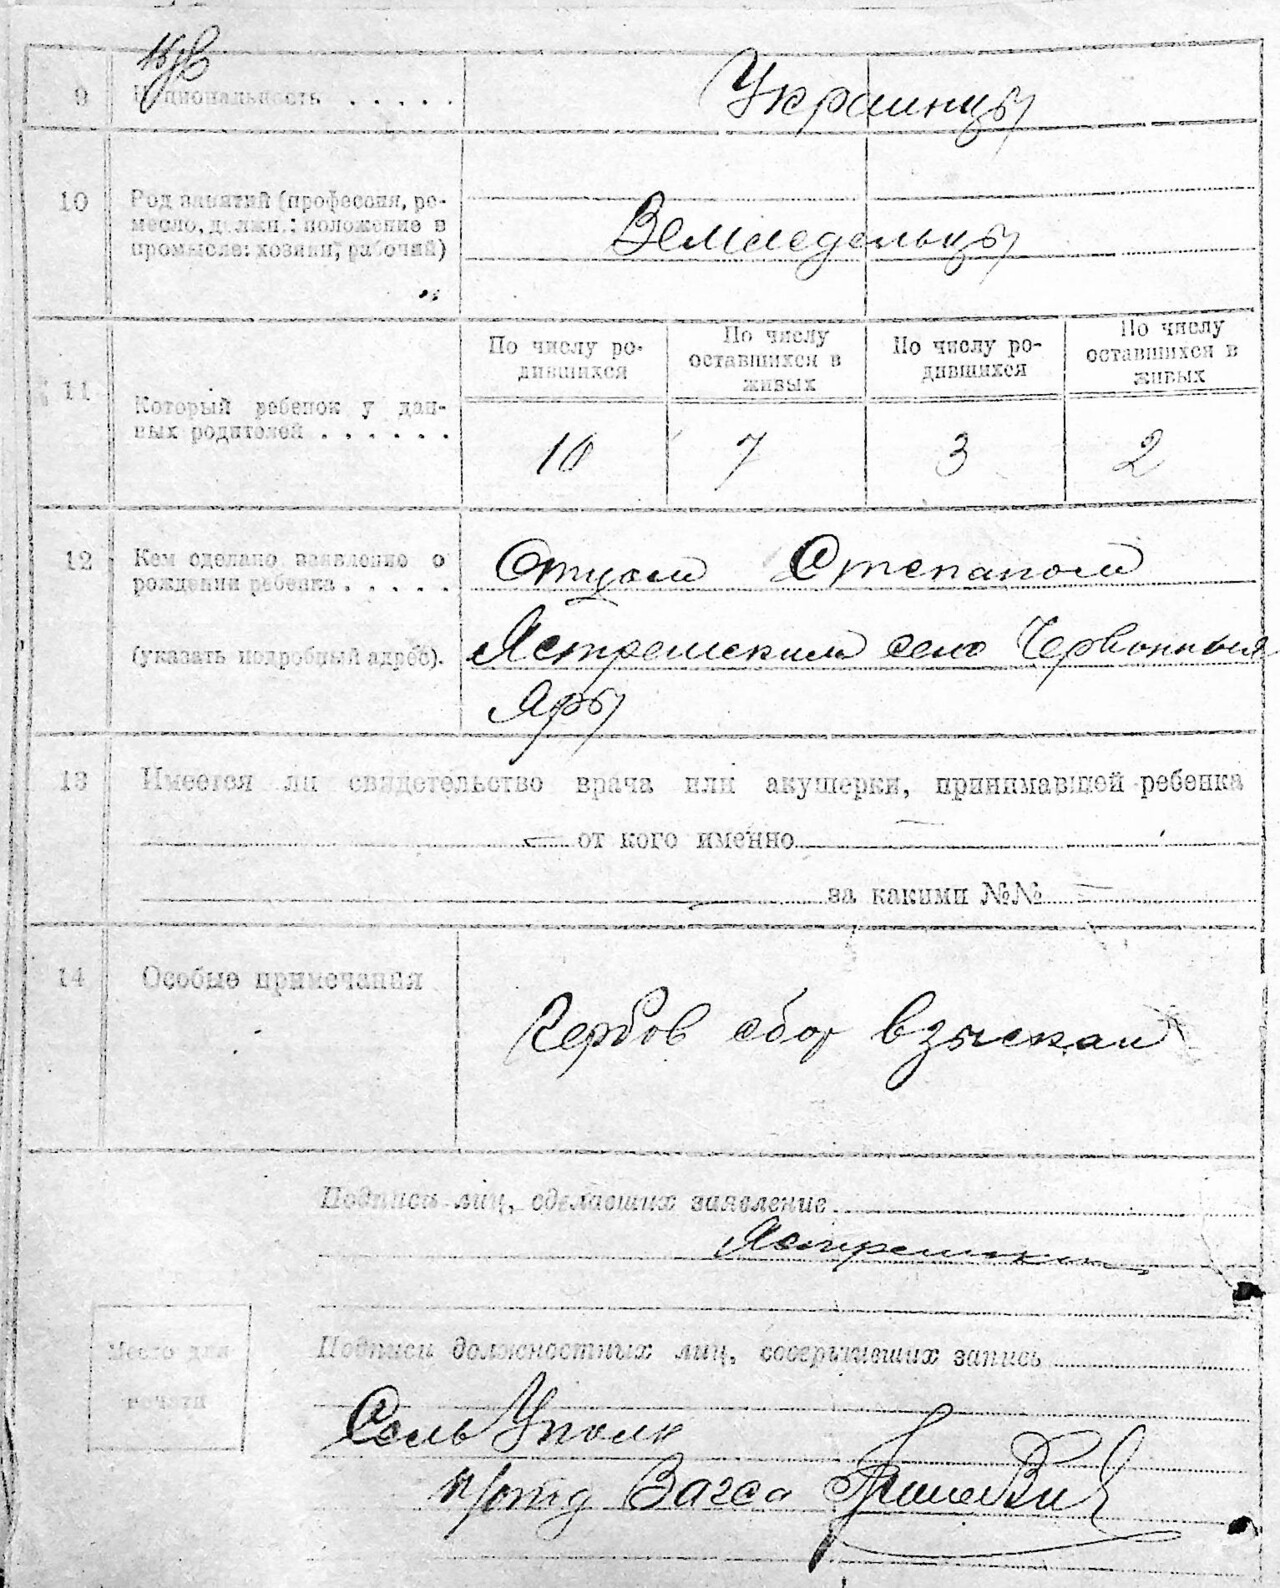 9 Национальность . . . . . Украинцы
10 Род занятий (профессия, ре-
месло, должн.: положение в
промысле: хозяин, рабочий)
Земледельцы
11 Который ребенок у дан-
ных родителей . . . . . .
По числу ро-
дившихся
По числу
оставшихся в
живых
По числу ро-
дившихся
По числу
оставшихся в
живых
10 7 3 2
12 Кем сделано заявление о
рождении ребенка . . . . .
(указать подробный адрес).
Отцом Степаном
Ястремским село Червонныя
Яры
13 Имеется ли свидетельство врача или акушерки, принимавшей ребенка
от кого именно
за какими №№
14 Особые примечания
Гербов сбор взыскан
Подписи лиц, сделавших заявление
Ястремский
Подписи должностных лиц, совершивших запись
Место для
печати
Сель Уполн
п/отд Загса